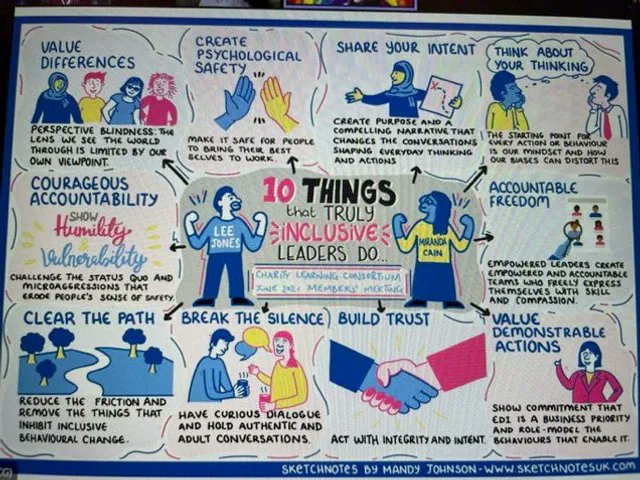 VALUE
DIFFERENCES
PERSPECTIVE BLINDNESS: THE
LENS WE SEE THE WORLD
THROUGH IS LIMITED BY OUR
OWN VIEWPOINT.
CREATE
PSYCHOLOGICAL
SAFETY
MAKE IT SAFE FOR PEOPLE
TO BRING THEIR BEST
SELVES TO WORK.
SHARE YOUR INTENT
CREATE PURPOSE AND A
COMPELLING NARRATIVE THAT
CHANGES THE CONVERSATIONS
SHAPING EVERYDAY THINKING
AND ACTIONS
THINK ABOUT
YOUR THINKING
THE STARTING POINT FOR
EVERY ACTION OR BEHAVIOUR
IS OUR MINDSET AND HOW
OUR BIASES CAN DISTORT THIS
COURAGEOUS
ACCOUNTABILITY
SHOW
Humility
&
Vulnerability
CHALLENGE THE STATUS QUO AND
MICROAGGRESSIONS THAT
ERODE PEOPLE'S SENSE OF SAFETY.
LEE
JONES
10 THINGS
that TRULY
INCLUSIVE
LEADERS DO...
CHARITY LEARNING CONSORTIUM
JUNE 2021 MEMBERS' MEETING
MIRANDA
CAIN
ACCOUNTABLE
FREEDOM
EMPOWERED LEADERS CREATE
EMPOWERED AND ACCOUNTABLE
TEAMS WHO FREELY EXPRESS
THEMSELVES WITH SKILL
AND COMPASSION.
CLEAR THE PATH
REDUCE THE FRICTION AND
REMOVE THE THINGS THAT
INHIBIT INCLUSIVE
BEHAVIOURAL CHANGE.
BREAK THE SILENCE
HAVE CURIOUS DIALOGUE
AND HOLD AUTHENTIC AND
ADULT CONVERSATIONS.
BUILD TRUST
ACT WITH INTEGRITY AND INTENT.
VALUE
DEMONSTRABLE
ACTIONS
SHOW COMMITMENT THAT
EDI IS A BUSINESS PRIORITY
AND ROLE-MODEL THE
BEHAVIOURS THAT ENABLE IT.
SKETCHNOTES BY MANDY JOHNSON-WWW.SKETCHNOTESUK.COM